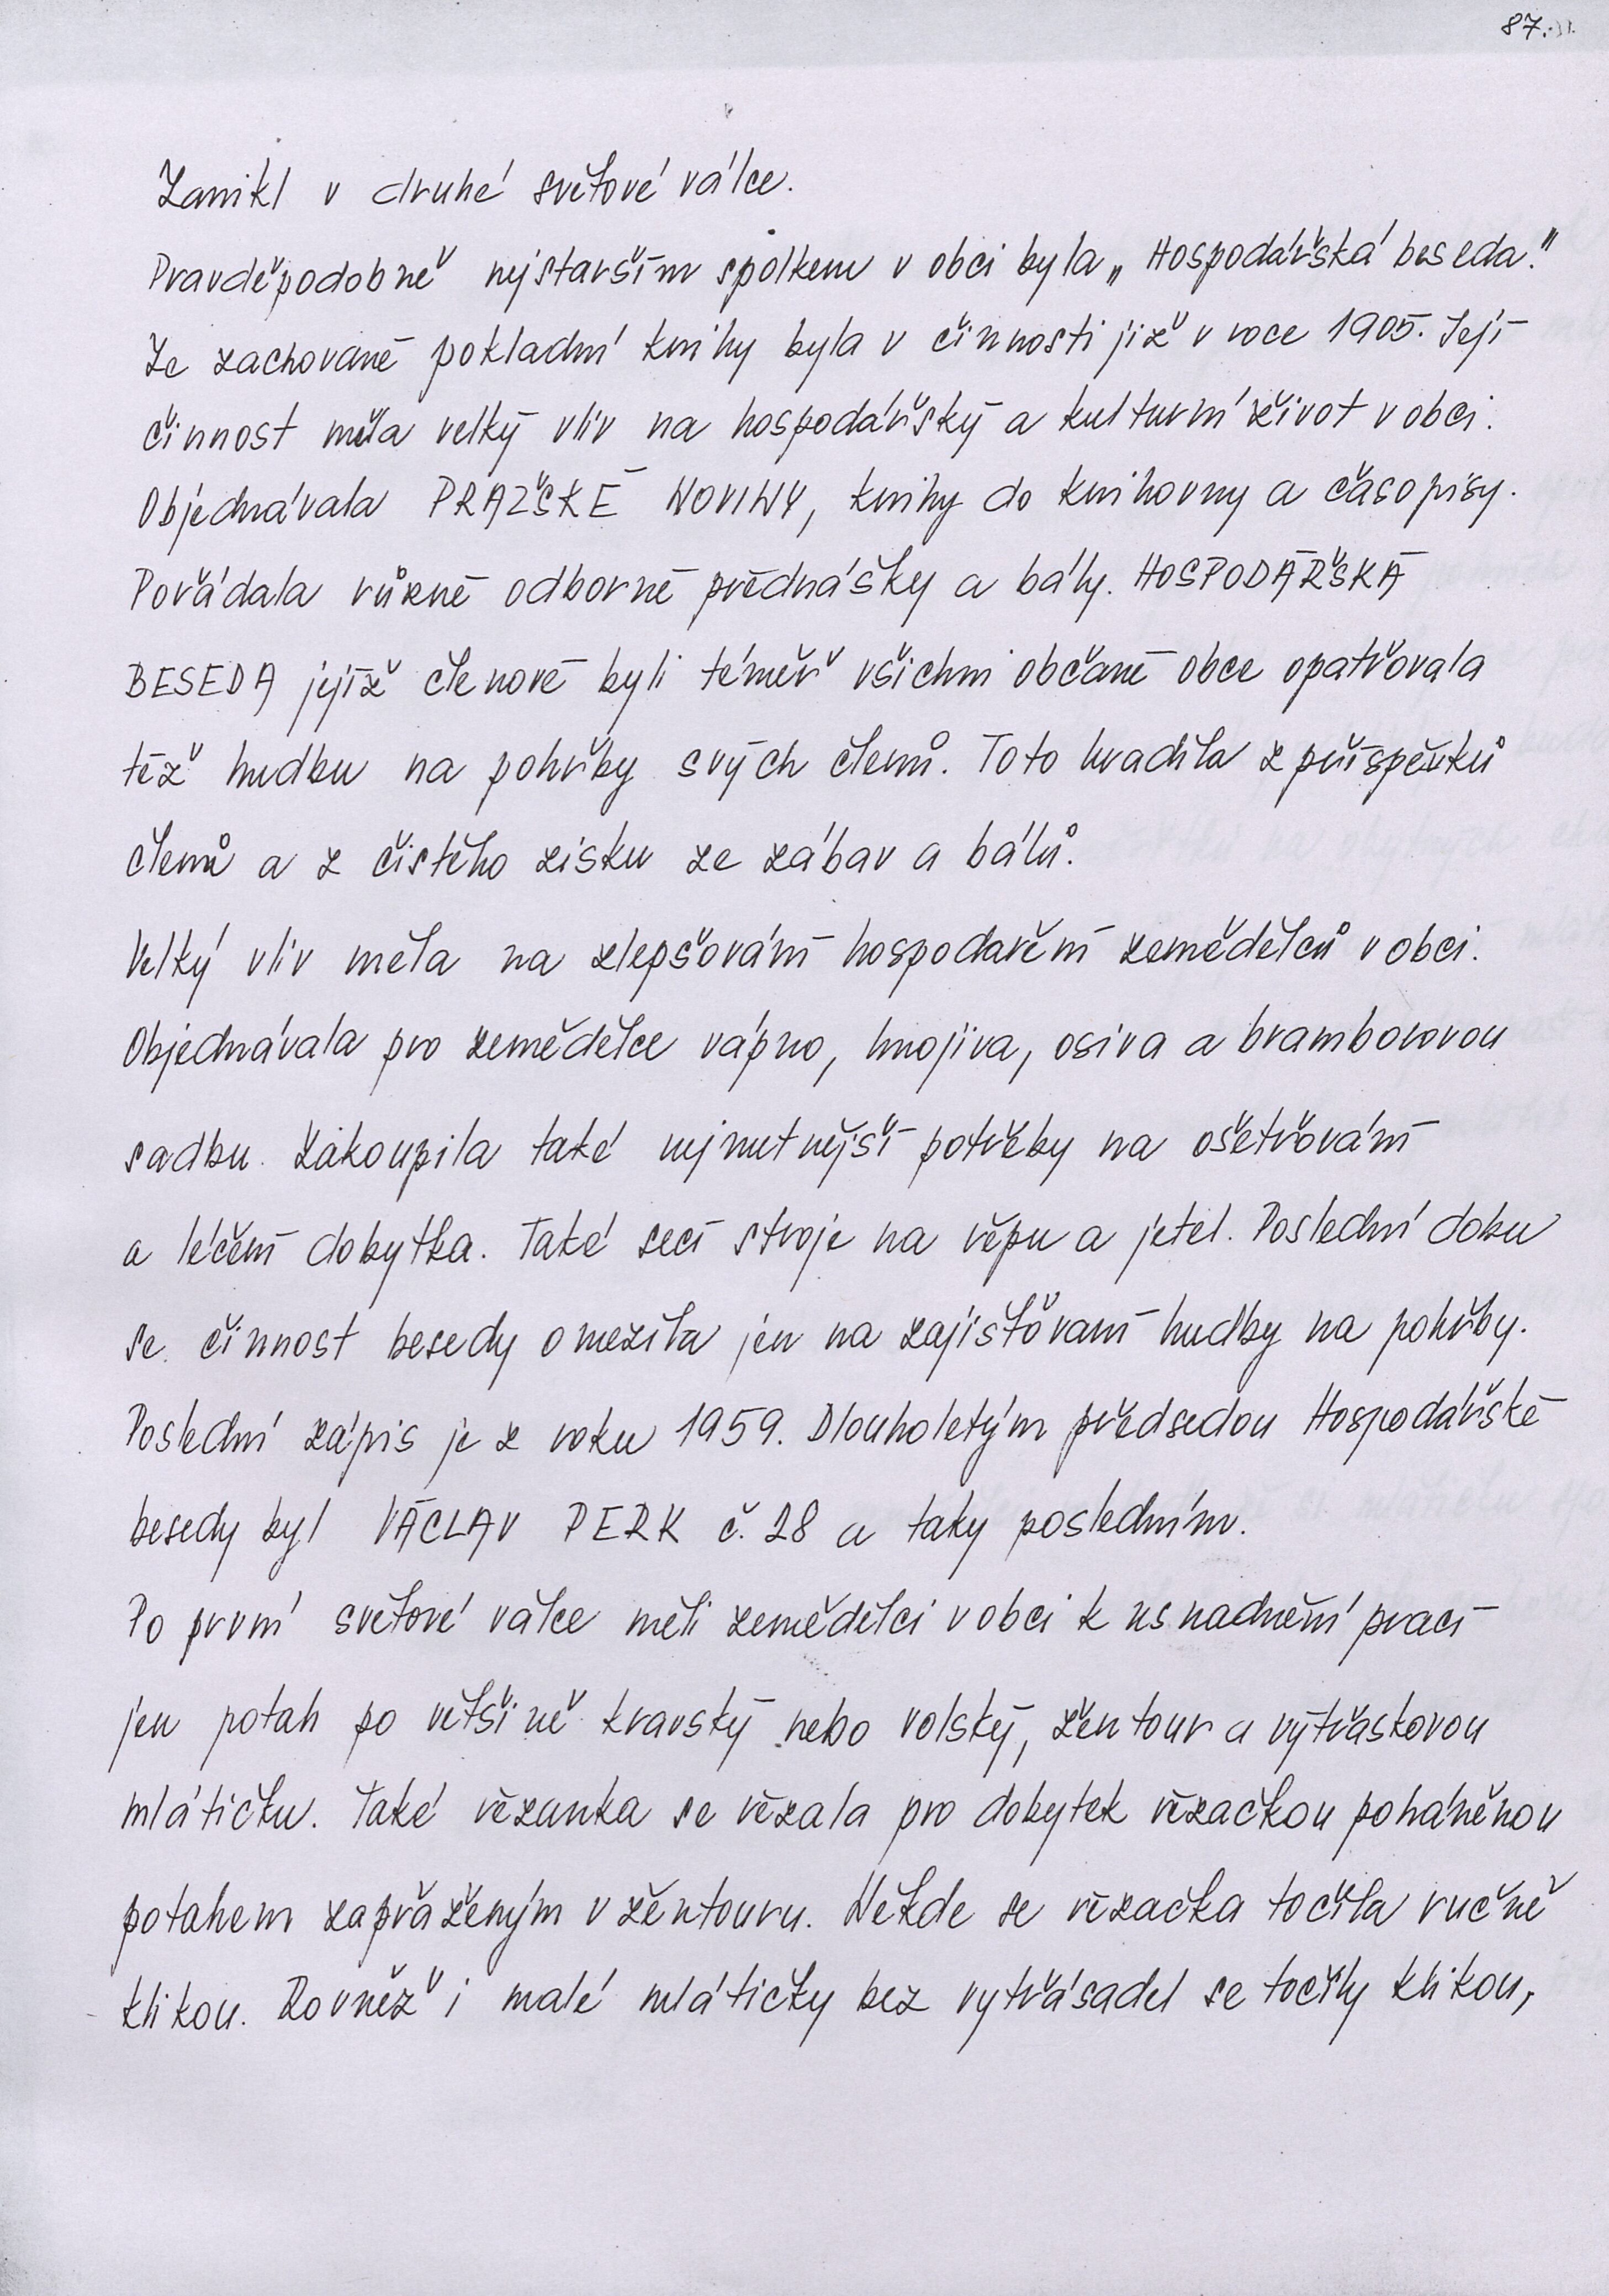 87.
Zanikl v druhé světové válce.
Pravděpodobně nejstarším spolkem v obci byla „Hospodářská beseda."
Ze zachované pokladní knihy byla v činnosti již v roce 1905. Její
činnost měla velký vliv na hospodářský a kulturní život v obci.
Objednávala PRAŽSKÉ NOVINY, knihy do knihovny a časopisy.
Pořádala různé odborné přednášky a bály. HOSPODÁŘSKÁ
BESEDA jejíž členové byli téměř všichni občané obce opatřovala
též hudbu na pohřby svých členů. Toto hradila z příspěvků
členů a z čistého zisku ze zábav a bálů.
Velký vliv měla na zlepšování hospodaření zemědělců v obci.
Objednávala pro zemědělce vápno, hnojiva, osiva a bramborovou
sadbu. Zakoupila také nejnutnější potřeby na ošetřování
a léčení dobytka. Také secí stroje na řepu a jetel. Poslední dobu
se činnost besedy omezila jen na zajišťování hudby na pohřby.
Poslední zápis je z roku 1959. Dlouholetým předsedou Hospodářské
besedy byl VÁCLAV PERK č. 28 a taky posledním.
Po první světové válce měli zemědělci v obci k usnadnění prací
jen potah po většině kravský nebo volský, žentour a výtřaskovou
mlátičku. Také řezanka se řezala pro dobytek řezačkou poháněnou
potahem zapřaženým v žentouru. Někde se řezačka točila ručně
klikou. Rovněž i malé mlátičky bez vytřásadel se točily klikou,